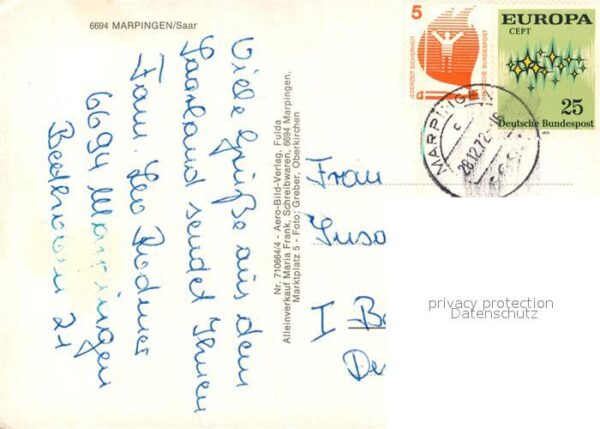 6694 MARPINGEN/Saar
Viele Grüße aus dem
Saarland sendet Ihnen
Fam. Leo
6694 Marpingen
21
Nr. 710664/4 - Aero-Bild-Verlag, Fulda
Alleinverkauf Maria Frank, Schreibwaren, 6694 Marpingen,
Marktplatz 5 - Foto: Greber, Oberkirchen
5
JEDERZEIT SICHERHEIT
DEUTSCHE BUNDESPOST
EUROPA
CEPT
25
Deutsche Bundespost
1972
MARPINGEN
28.12.72
6694
Frau
I
privacy protection
Datenschutz